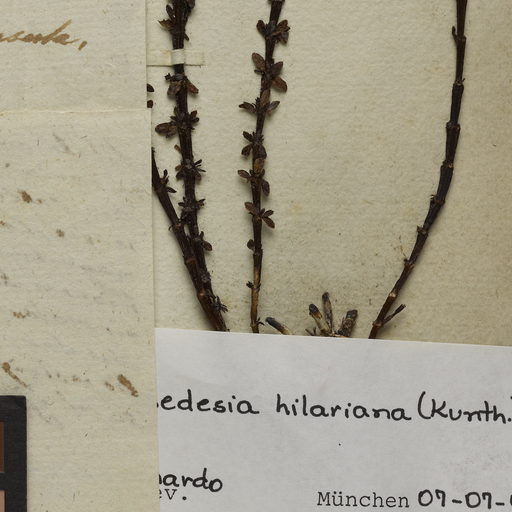 edesia hilariana (Kunth.
nardo
ev.
München 07-07-